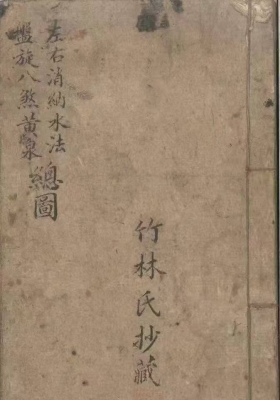 左右消納水法
盤旋八煞黃泉總圖
竹林氏抄藏
上